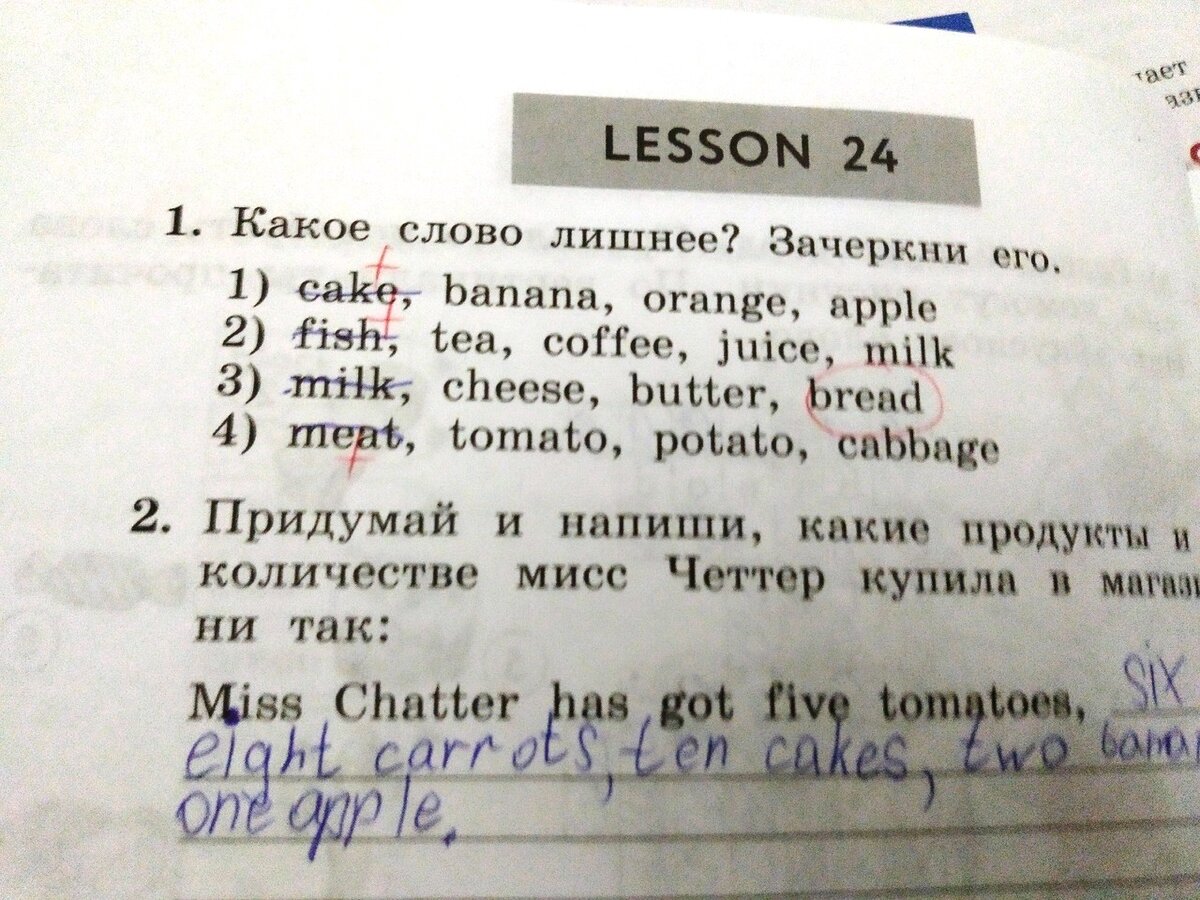 LESSON 24
1. Какое слово лишнее? Зачеркни его.
1) cake, banana, orange, apple
2) fish, tea, coffee, juice, milk
3) milk, cheese, butter, bread
4) meat, tomato, potato, cabbage
2. Придумай и напиши, какие продукты и
количестве мисс Четтер купила в магаз
ни так:
Miss Chatter has got five tomatoes, six
eight carrots, ten cakes, two banan
one apple.